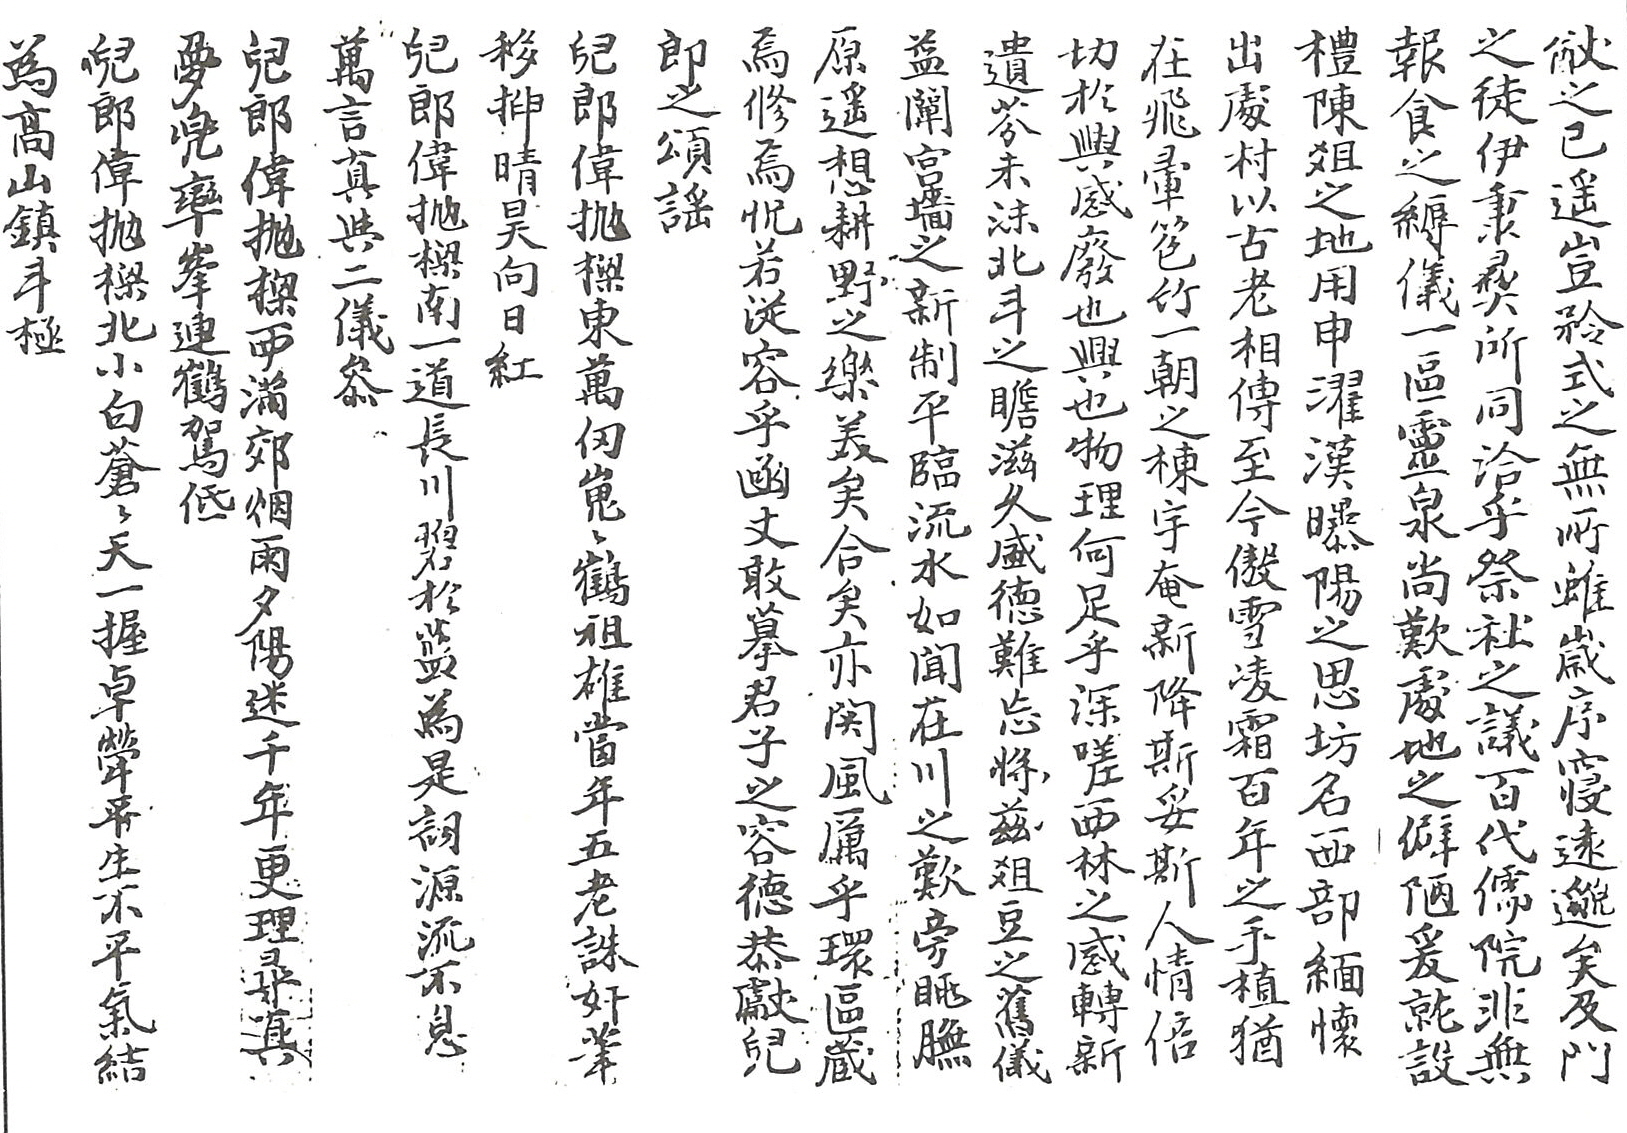 猷之已遥豈矜式之無所雖歲序寖遠邈矣及門
之徒伊秉彛所同洽乎祭社之議百代儒院非無
報食之縟儀一區靈泉尚歎處地之僻陋爰就設
禮陳俎之地用申濯漢曝陽之思坊名西部緬懷
出處村以古老相傳至今傲雪凌霜百年之手植猶
在飛翬笣竹一朝之棟宇奄新降斯妥斯人情倍
切於興感廢也興也物理何足乎深嗟西林之感轉新
遺芬未沬北斗之瞻滋久盛德難忘將玆俎豆之舊儀
益闡宮墻之新制平臨流水如聞在川之歎旁眺膴
原遥想耕野之樂美矣合矣亦関風厲乎環區蔵
焉修焉怳若從容乎函丈敢摹君子之容德恭獻兒
郎之頌謠
兒郎偉抛樑東萬仞嵬〻鶴祖雄當年五老誅奸輩
移押晴昊向日紅
兒郎偉抛樑南一道長川碧於藍為是詞源流不息
萬言真與二儀叅
兒郎偉抛樑西滿郊烟雨夕陽迷千年更理尋真
夢兜率峯連鶴駕低
兒郎偉抛樑北小白蒼〻天一握卓犖平生不平氣結
為高山鎮斗極